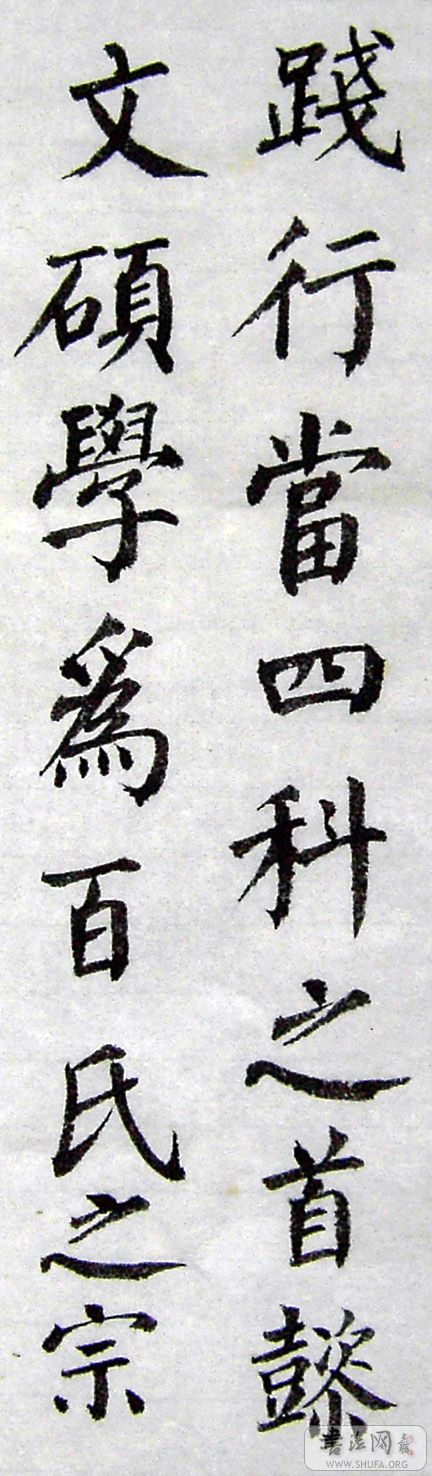 踐行當四科之首懿
文碩學爲百氏之宗
書法网
WWW.SHUFA.ORG